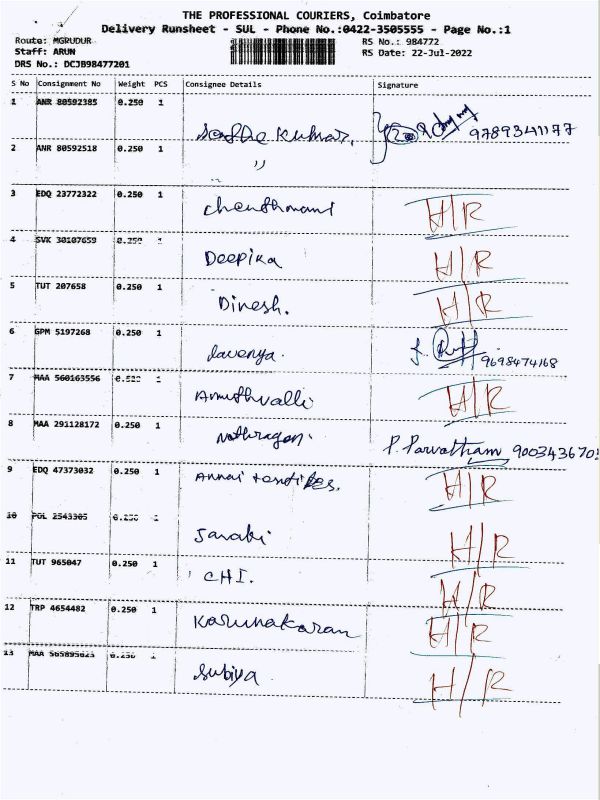 THE PROFESSIONAL COURIERS, Coimbatore
Delivery Runsheet - SUL - Phone No.:0422-3505555 - Page No.:1
Route: MGRUDUR RS No.: 984772
Staff: ARUN RS Date: 22-Jul-2022
DRS No.: DCJB98477201
S No Consignment No Weight PCS Consignee Details Signature
1 ANR 80592385 0.250 1 Kumar, 9789341177
2 ANR 80592518 0.250 1 ,,
3 EDQ 23772322 0.250 1 H/R
4 SVK 30107659 0.250 1 Deepika H/R
5 TUT 207658 0.250 1 Dinesh. H/R
6 GPM 5197268 0.250 1 lavenya. 9698474168
7 MAA 560163556 1 Amuthvalli H/R
8 MAA 291128172 0.250 1 P. Parvatham 900343670
9 EDQ 47373032 0.250 1 Annai H/R
10 POL 2543305 0.250 1 Janaki H/R
11 TUT 965047 0.250 1 CHI. H/R
12 TRP 4654482 0.250 1 Karunakaran H/R
13 MAA 0.250 1 Subiya. H/R